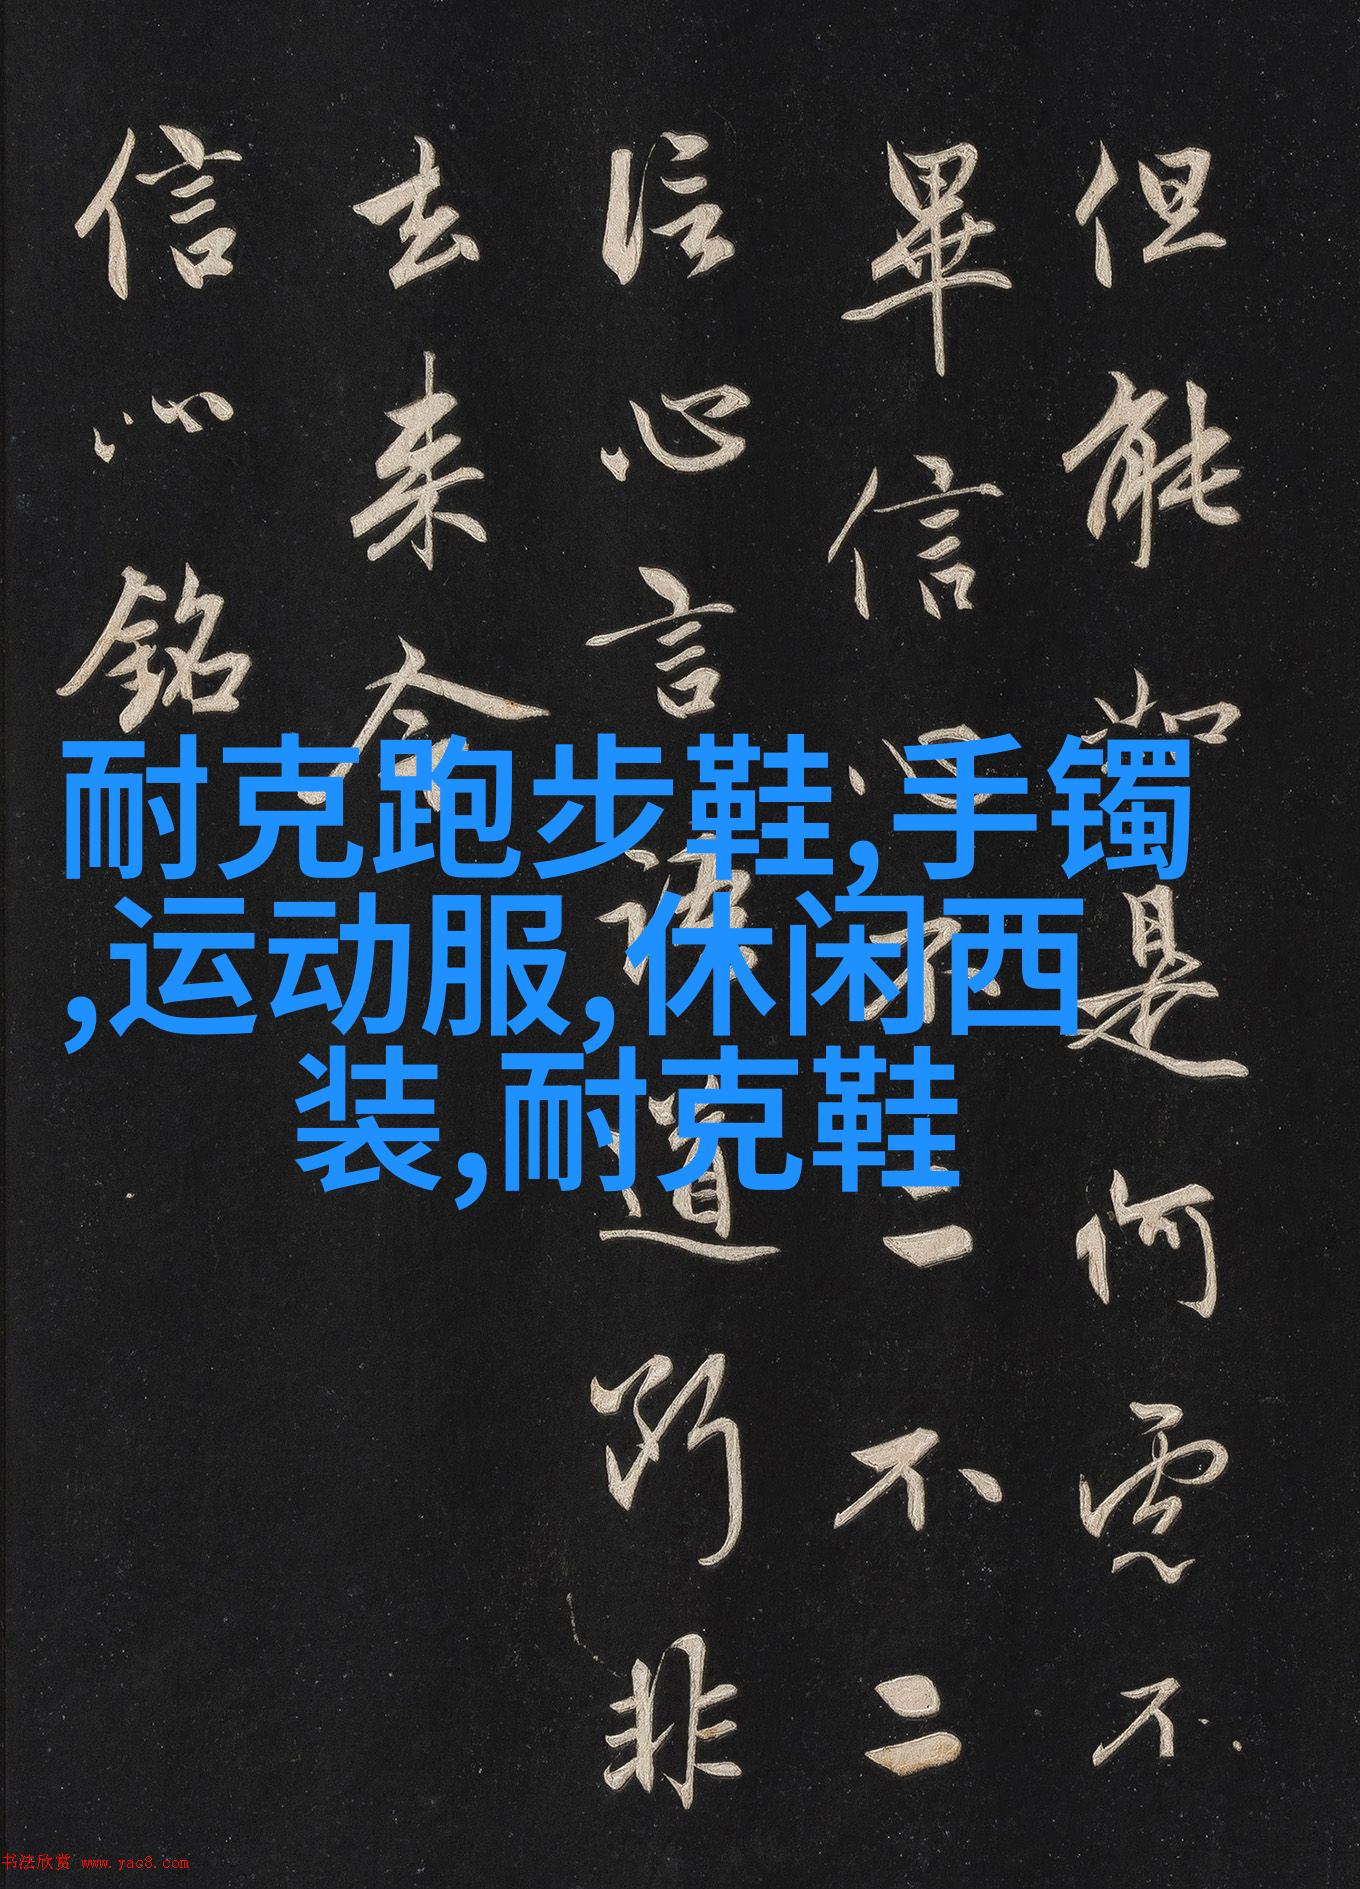 但能如是何慮不
畢信心不二不二
信心言語道斷非
去来今
信心銘
耐克跑步鞋,手镯
,运动服,休闲西
装,耐克鞋
书法欣赏 www.yac8.com